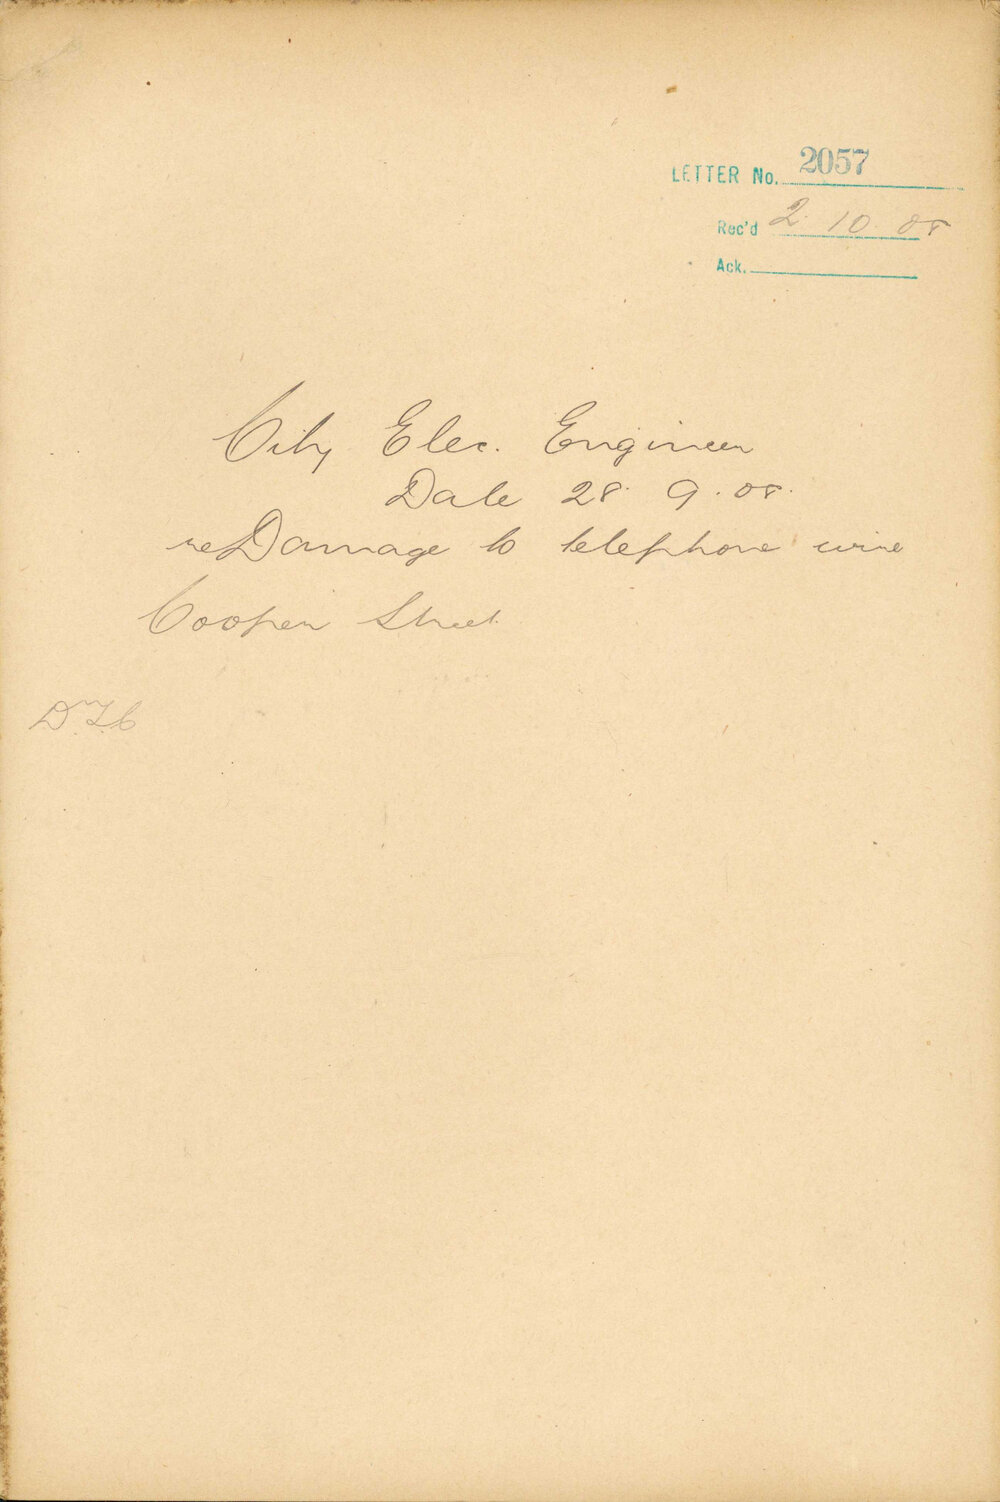 LETTER No. 2057
Rec'd 2. 10. 08
Ack.
City Elec. Engineer
Date 28. 9. 08.
re Damage to telephone wire
Cooper Street